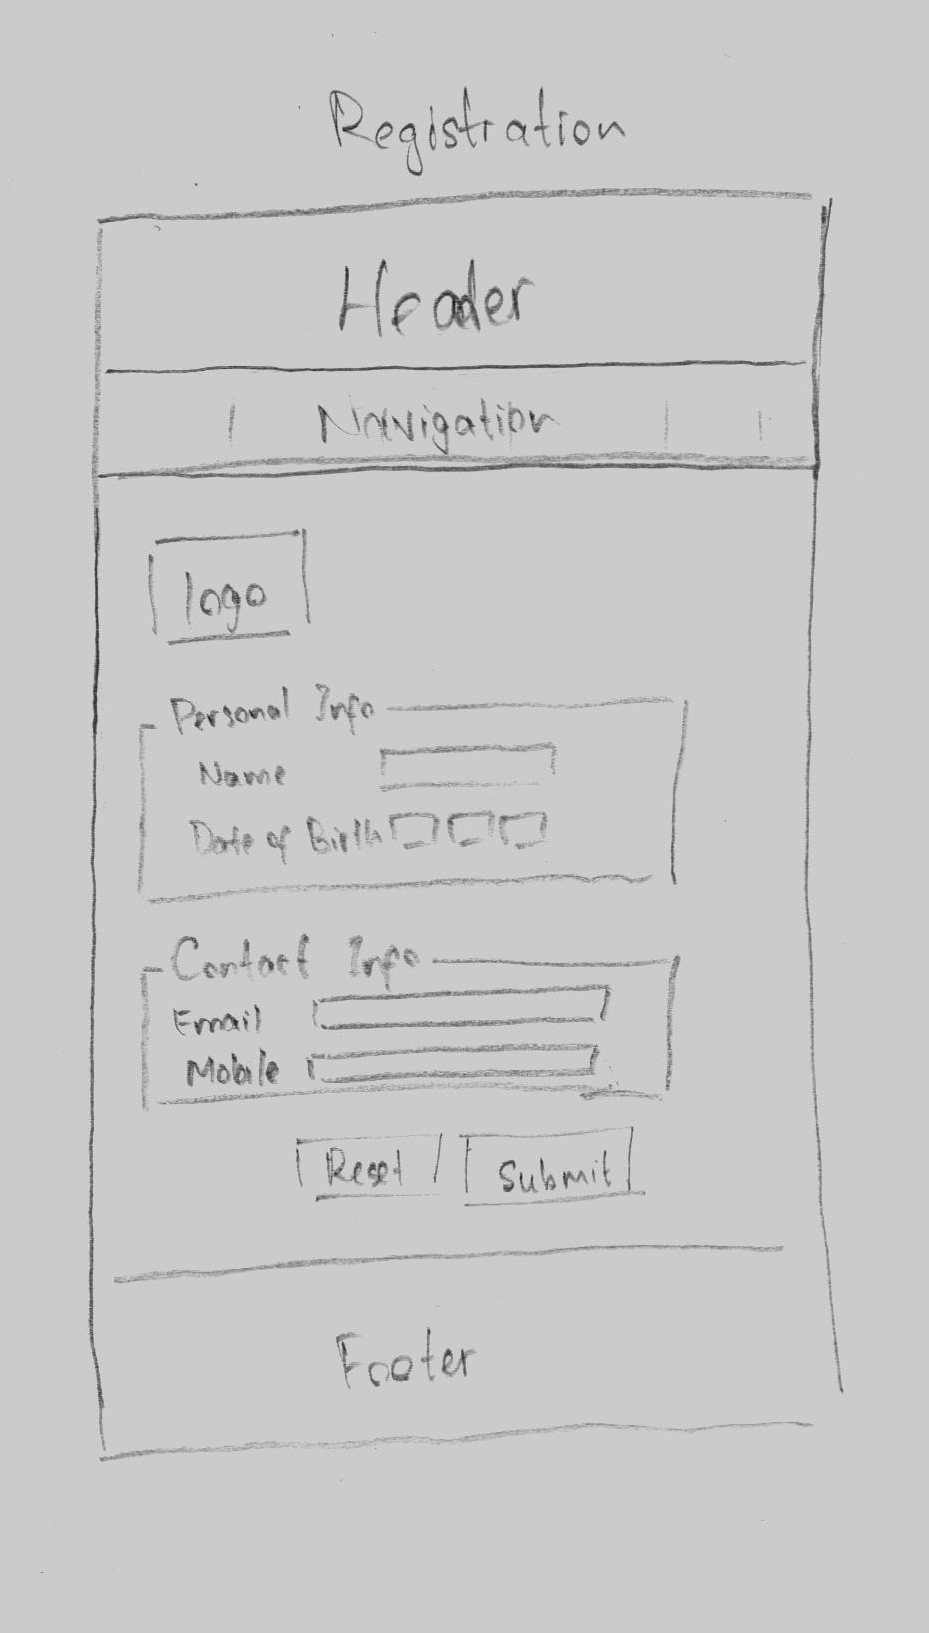 Registration
Header
Navigation
logo
Personal Info
Name
Date of Birth
Contact Info
Email
Mobile
Reset Submit
Footer